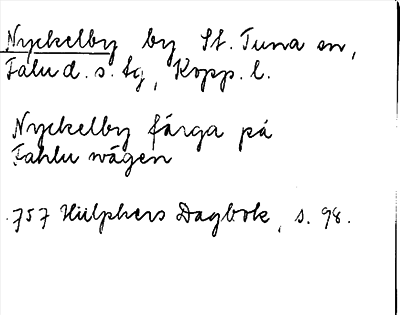 Nyckelby by St. Tuna sn,
Falu d. s. lg, Kopp. l.
Nyckelby färga på
Fahlu wägen
757 Hülphers Dagbok, s. 98.